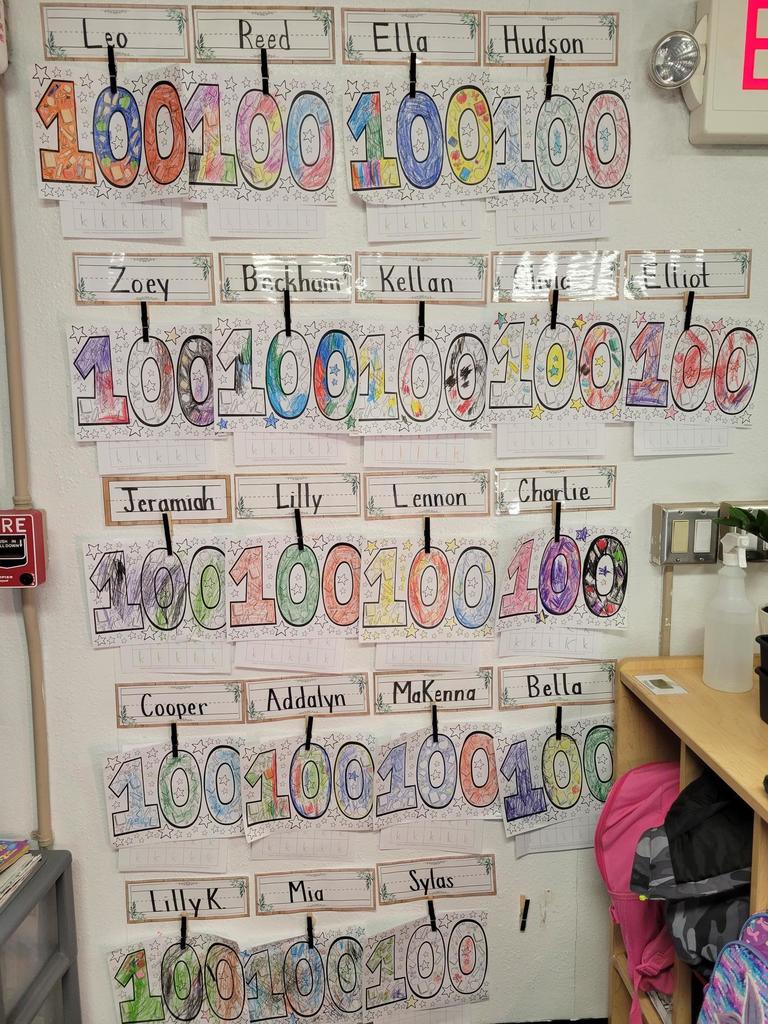 Leo Reed Ella Hudson
100 100 100 100
k k k k k
Zoey Beckham Kellan Olivia Eliot
100 100 100 100 100
Jeramiah Lilly Lennon Charlie
100 100 100 100
Cooper Addalyn MaKenna Bella
100 100 100 100
Lilly K. Mia Sylas
100 100 100